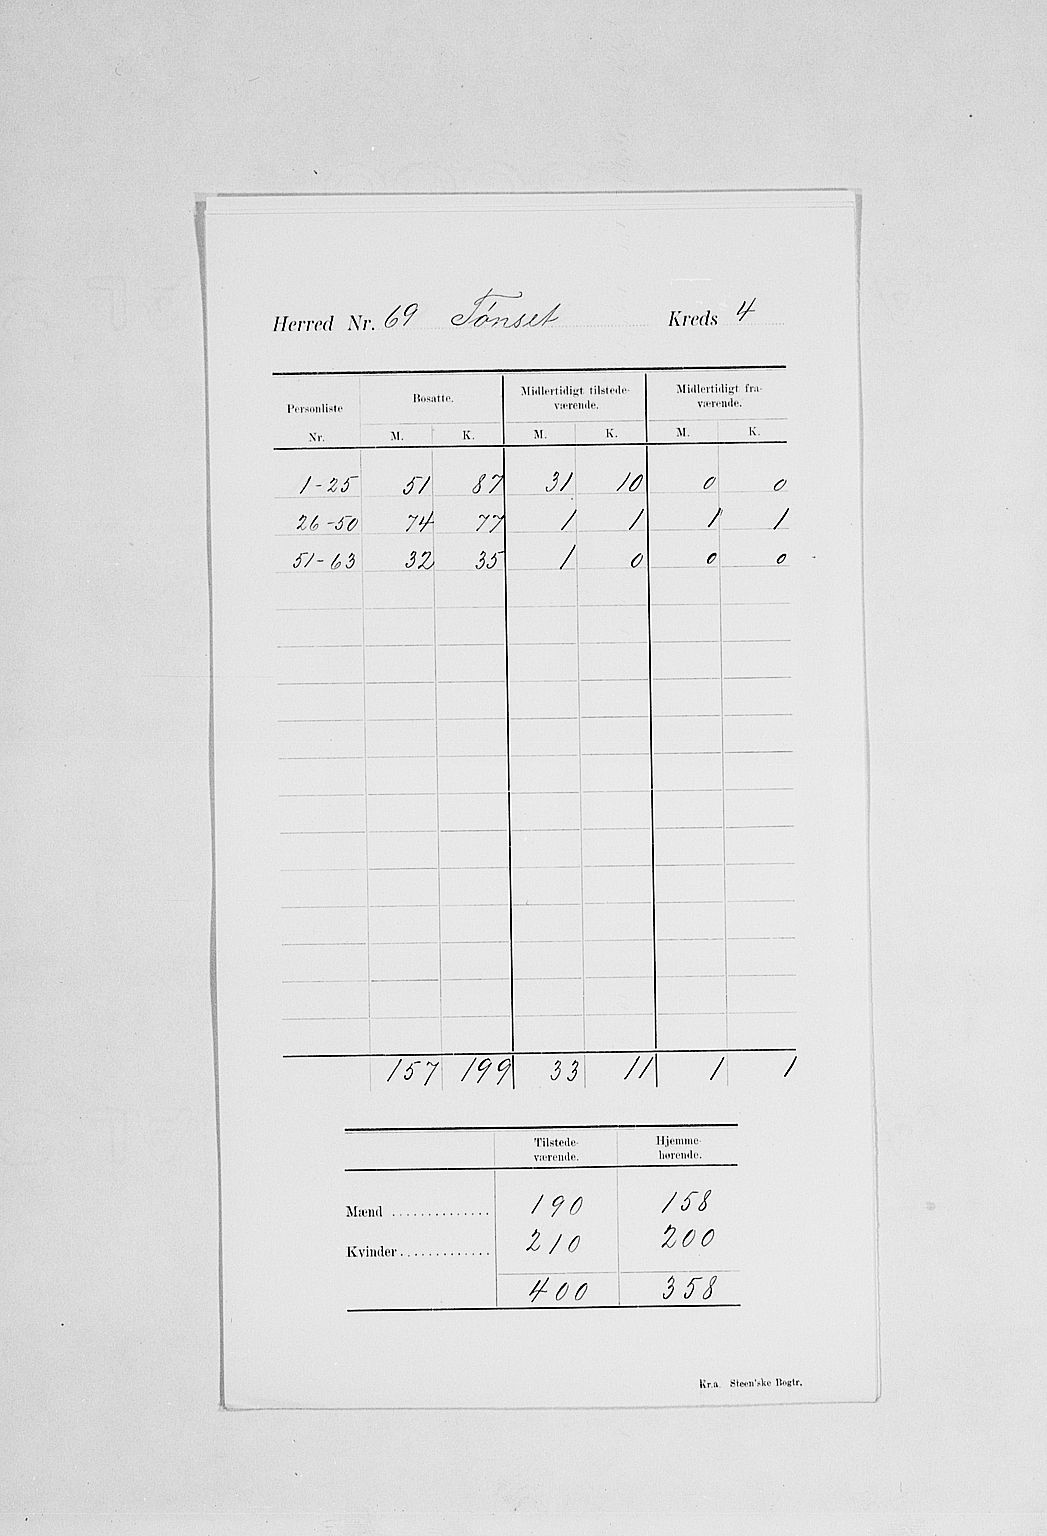 Herred Nr. 69 Tønset Kreds 4
Personliste Nr. Bosatte. Midlertidigt tilstede- værende. Midlertidigt fra- værende.
M. K. M. K. M. K.
1-25 51 87 31 10 0 0
26-50 74 77 1 1 1 1
51-63 32 35 1 0 0 0
157 199 33 11 1 1
Tilstede- værende. Hjemme- hørende.
Mænd .............. 190 158
Kvinder............. 210 200
400 358
Kr.a. Steen'ske Bogtr.